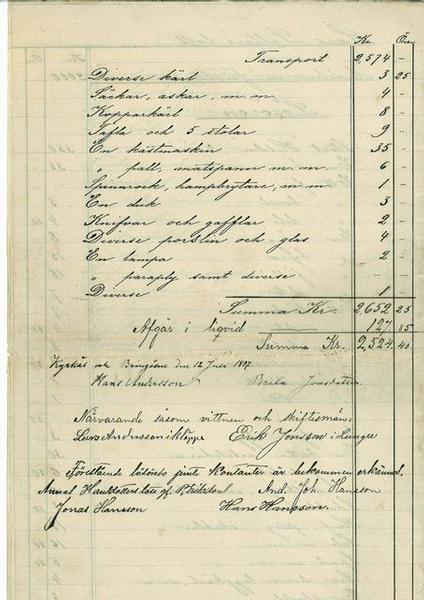 Kr. Öre
Transport 2,574 –
Diverse kärl 3 25
Säckar, askar, m. m. 4 –
Kopparkärl 8 –
Tafla och 5 stolar 9 –
En kastmaskin 35 –
" pall, matspann m. m. 6 –
Spinnrock, hampbrytare, m. m 1 –
En duk 3 –
Knifvar och gafflar 2 –
Diverse porslin och glas 4 –
En lampa 2 –
" paraply samt diverse –
Diverse 1 –
Summa Kr. 2,652 25
Afgår i liqvid 127 85
Summa Kr. 2,524 40
Kyrkås och den 12 Juni
Hans Andersson Brita Jonsdotter
Närvarande såsom vittnen och skiftismän:
Lars Andersson i Klappe Erik Jonsson i Lunge
Förestående lösöre jemte kontanter är bekommen erkännes.
And. Joh. Hansson
Jonas Hansson Hans Hansson.